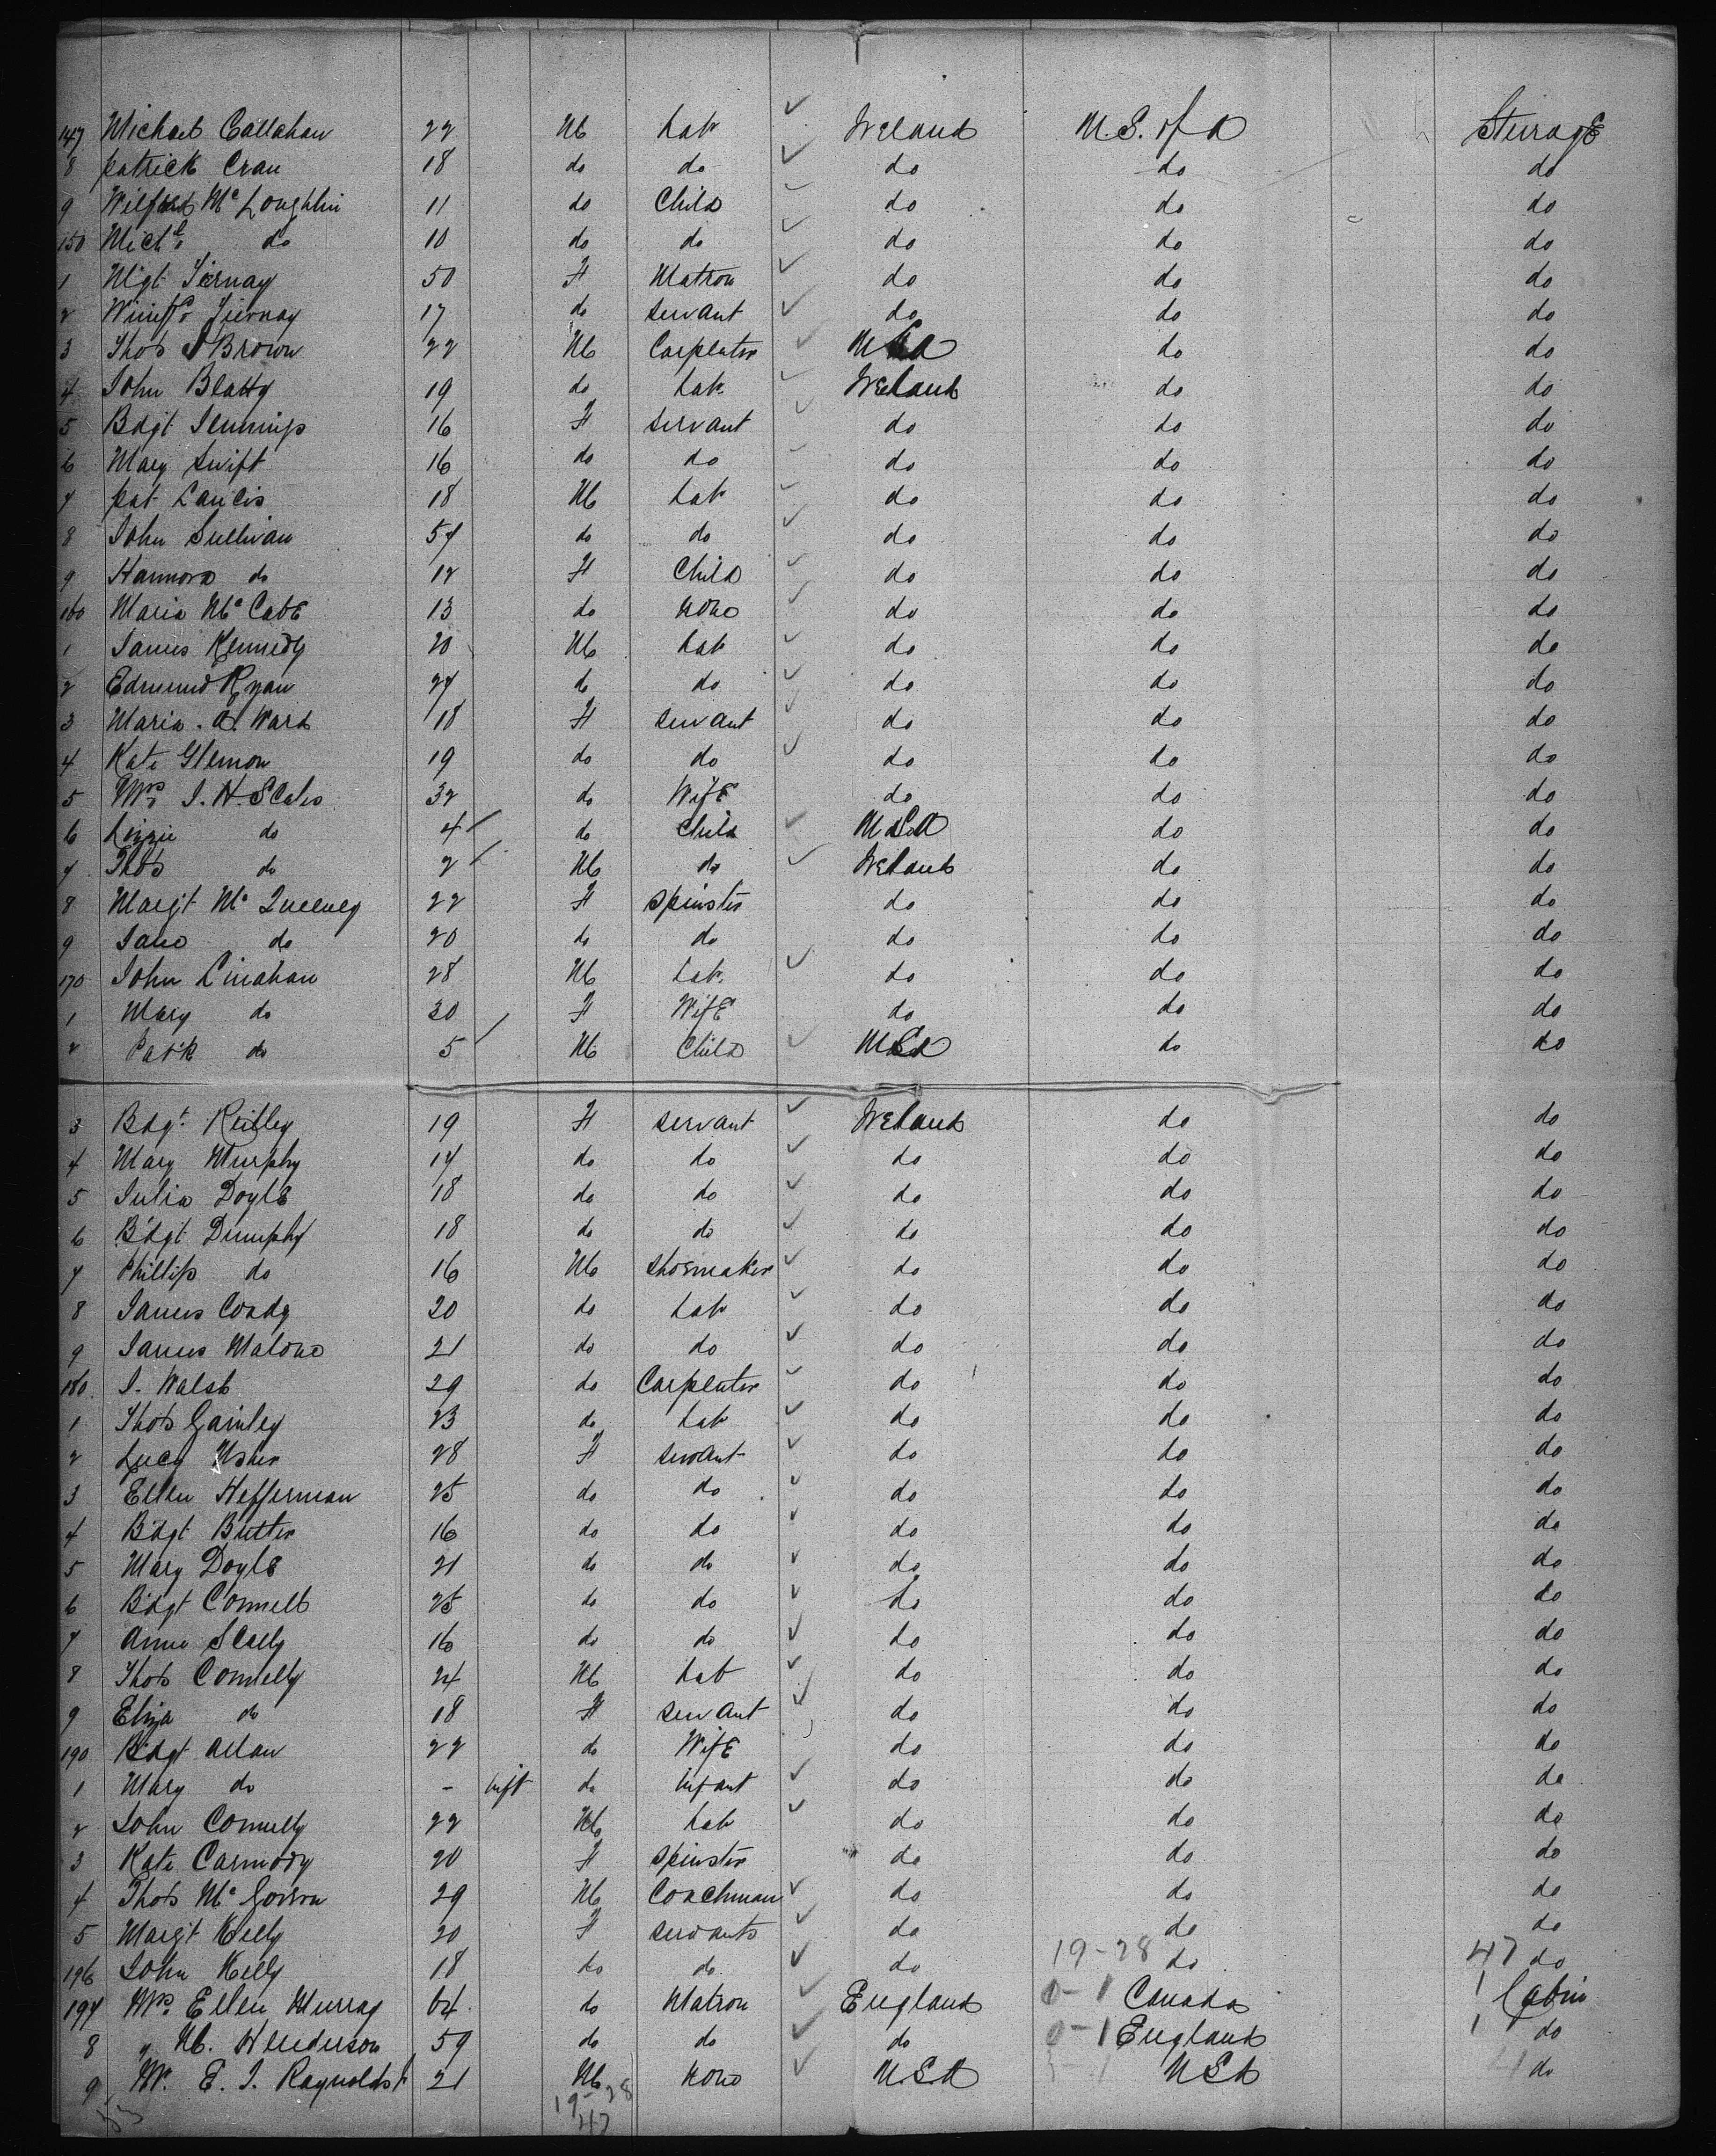 147 Michael Callahan 22 M Lab Ireland U.S. of A Steerage
8 patrick Cran 18 do do do do do
9 Wilfred Mc Loughlin 11 do Child do do do
150 Michl do 10 do do do do do
1 Mgt Tiernay 50 F Matron do do do
2 Winifd Tiernay 17 do Servant do do do
3 Thos J Brown 22 M Carpenter USA do do
4 John Beatty 19 do Lab Ireland do do
5 Bdgt Jennings 16 F Servant do do do
6 Mary Swift 16 do do do do do
7 pat 18 M Lab do do do
8 John Sullivan 54 do do do do do
9 Hannora do 12 F Child do do do
160 Maria Mc Cabe 13 do None do do do
1 James Kennedy 20 M Lab do do do
2 Edmund Ryan 24 do do do do do
3 Maria . A. Ward 18 F Servant do do do
4 Kate Glennon 19 do do do do do
5 Mrs J. H. Scales 32 do Wife do do do
6 Lizzie do 4 do Child USA do do
7 Thos do 2 M do Ireland do do
8 Margt Mc Queeney 22 F Spinster do do do
9 Jane do 20 do do do do do
170 John Linahan 28 M Lab. do do do
1 Mary do 30 F Wife do do do
2 Patk do 5 M Child USA do do
3 Bdgt Reilley 19 F Servant Ireland do do
4 Mary Murphy 14 do do do do do
5 Julia Doyle 18 do do do do do
6 Bdgt Dunphy 18 do do do do do
7 Phillip do 16 M Shoemaker do do do
8 James Coady 20 do Lab do do do
9 James Malone 21 do do do do do
180 J. Walsh 29 do Carpenter do do do
1 Thos Gainley 23 do Lab do do do
2 Lucy Usher 28 F Servant do do do
3 Ellen Hefferman 25 do do do do do
4 Bdgt Butter 16 do do do do do
5 Mary Doyle 21 do do do do do
6 Bdgt Connell 25 do do do do do
7 Anne Scally 16 do do do do do
8 Thos Connelly 24 M Lab do do do
9 Eliza do 18 F Servant do do do
190 Bdgt Allan 22 do Wife do do do
1 Mary do - inft do Infant do do do
2 John Connelly 22 M Lab do do do
3 Kate Carmody 20 F Spinster do do do
4 Thos Mc Govern 29 M Coachman do do do
5 Margt Kelly 20 F Servants do do do
196 John Kelly 18 do do do 19-28 do 47 do
197 Mrs Ellen Murray 64 do Matron England 0-1 Canada 1 Cabin
8 " M. Henderson 59 do do do 0-1 England 1 do
9 Mr. E. J. Raynolds 21 M None U.S.A USA do
19-28
47
53